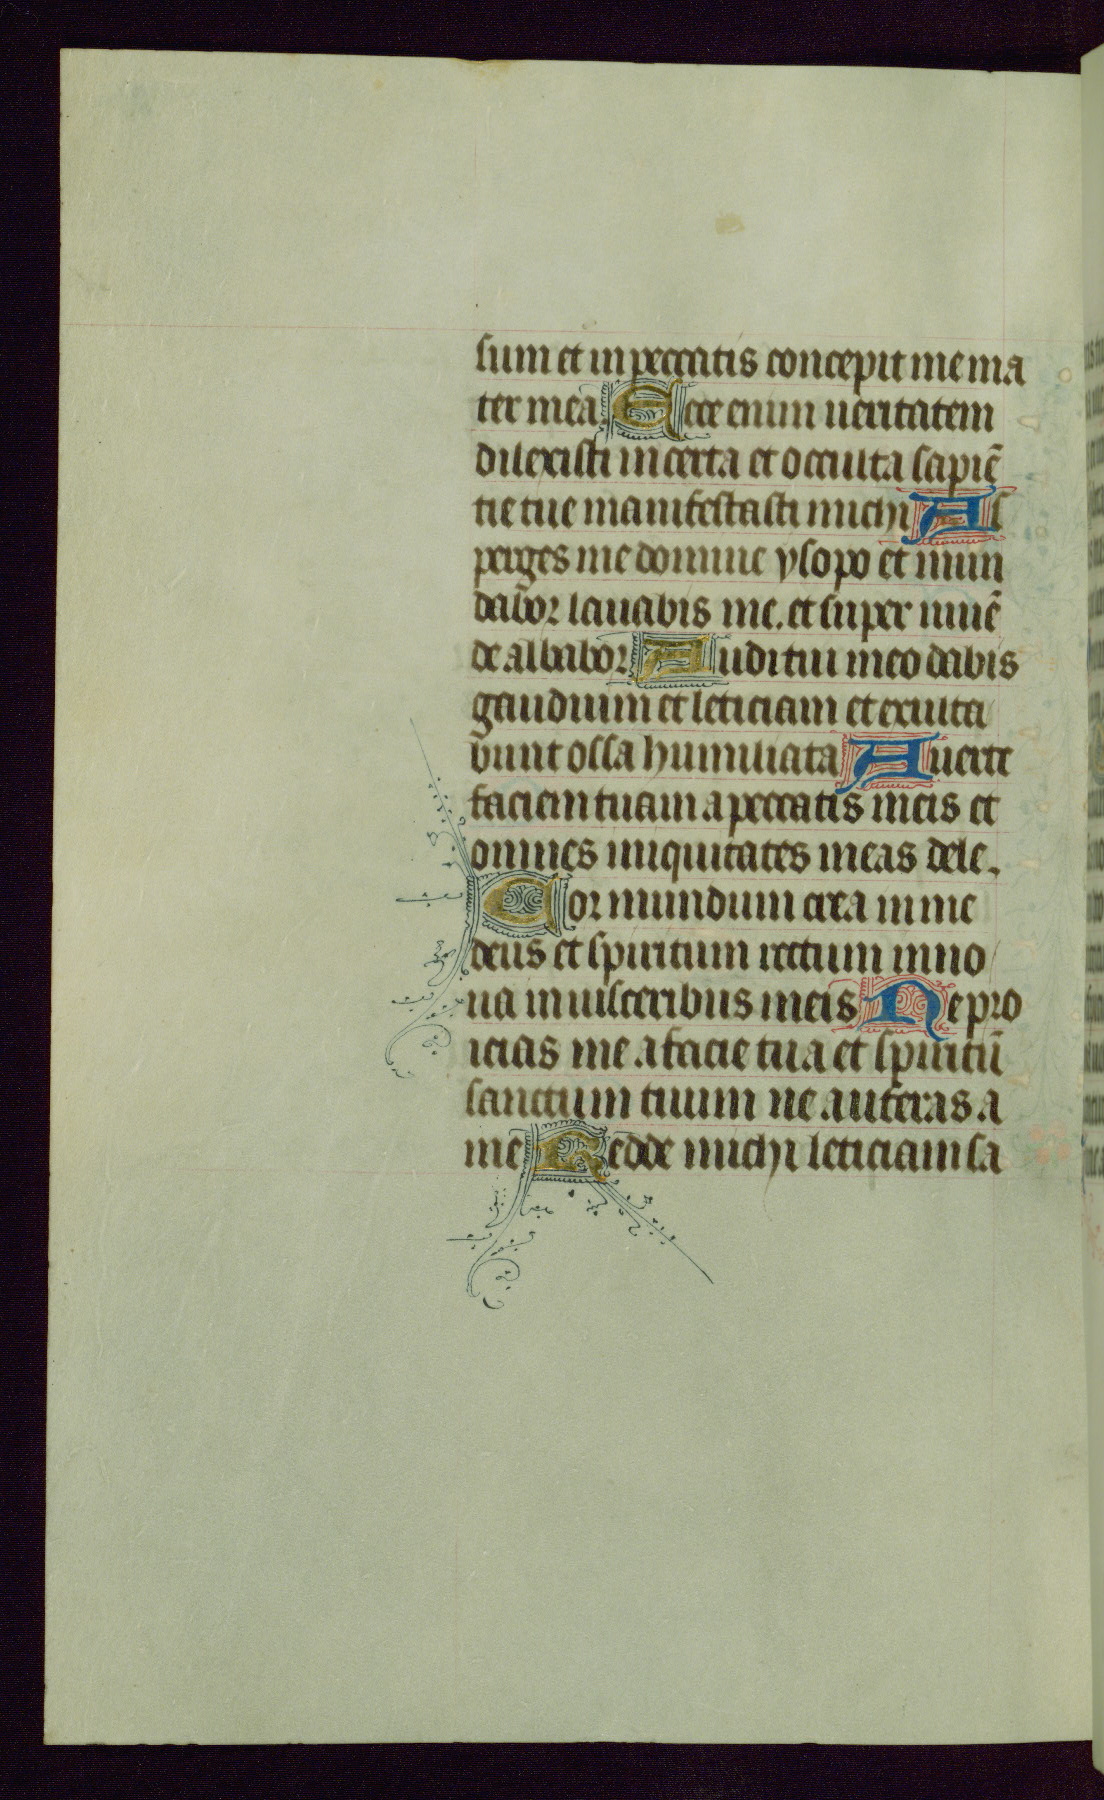 sum et in peccatis concepit me ma
ter mea Ecce enim ueritatem
dilexisti incerta et occulta sapiē
tie tue manifestasti michi As
perges me domine ysopo et mun
dabor lauabis me. et super niuē
de albabor Auditui meo dabis
gaudium et leticiam et exulta
bunt ossa humiliata Auerte
faciem tuam a peccatis meis et
omnes iniquitates meas dele.
Cor mundum crea in me
deus et spiritum rectum inno
ua in uisceribus meis Ne pro
icias me a facie tua et spiritū
sanctum tuum ne auferas a
me Redde michi leticiam sa